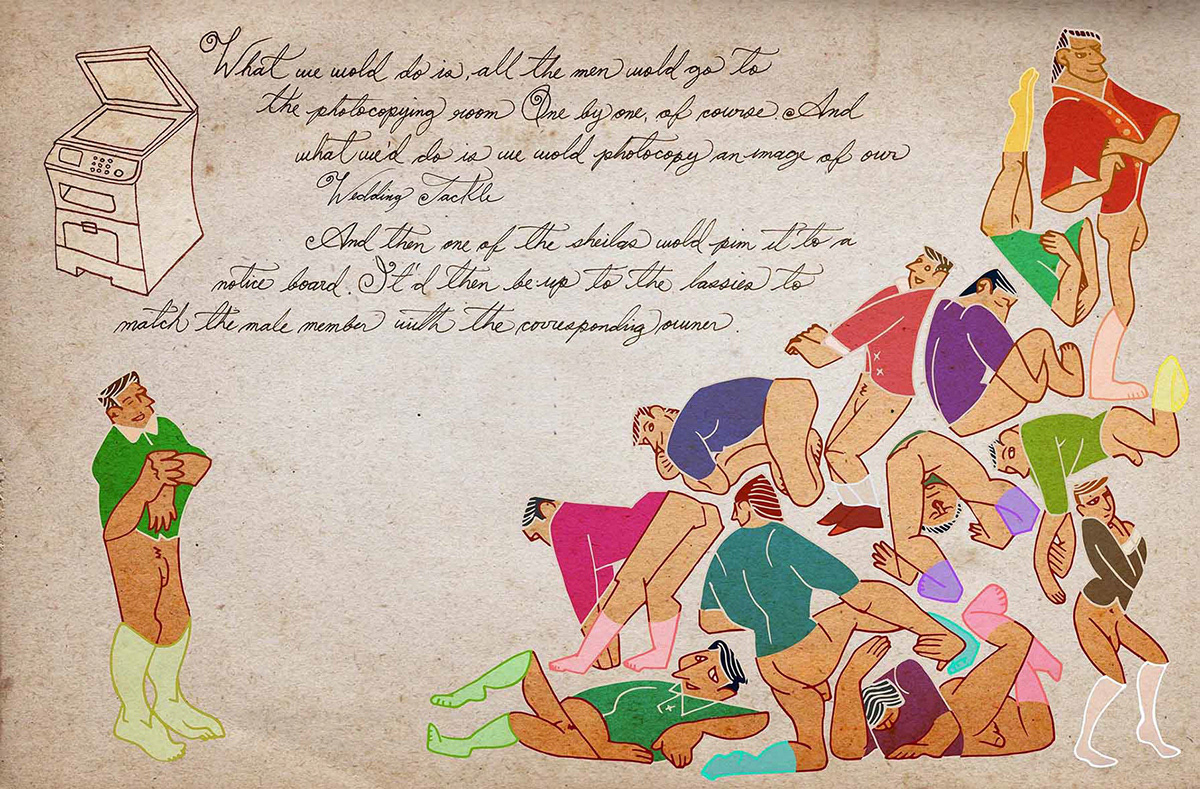 What we wold do is, all the men wold go to
the photocopying room One by one, of course. And
what we'd do is we wold photocopy an image of our
Wedding Tackle
And then one of the sheilas wold pim it to a
notice board. It'd then be up to the lassies to
match the male member with the corresponding owner.